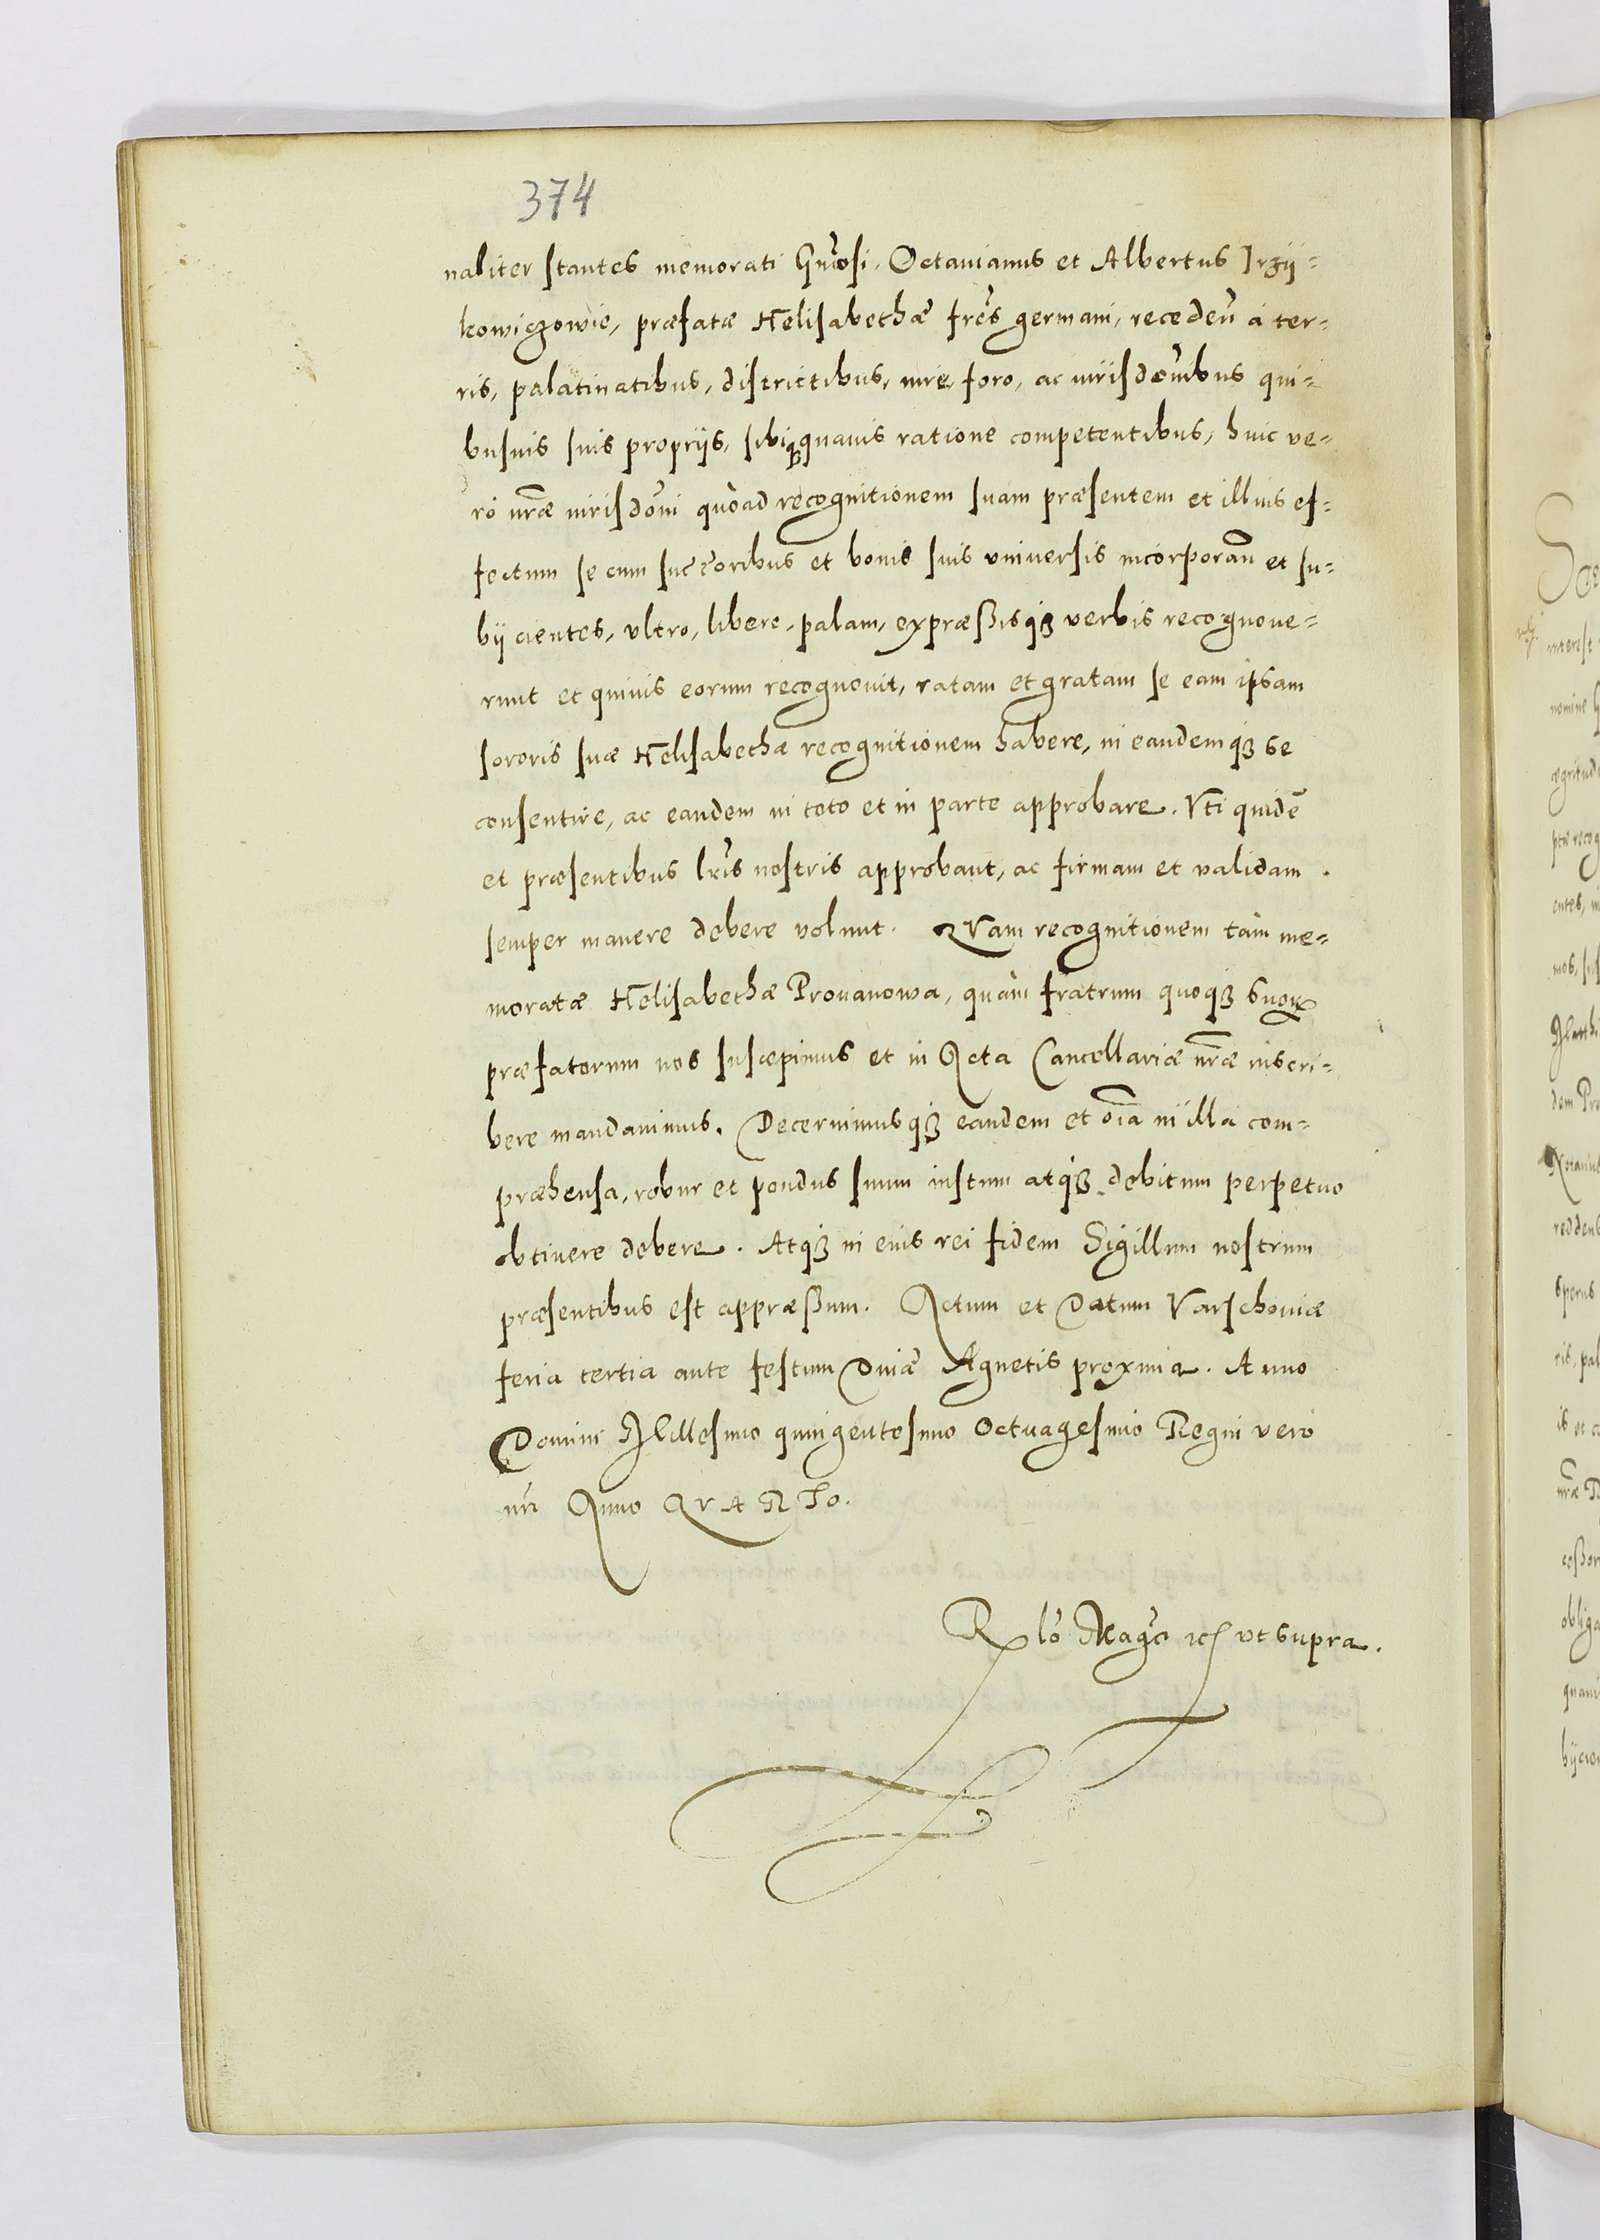 374
naliter stantes memorati Gñrosi, Octauianus et Albertus Jrzÿ=
kowiczowie, præfatæ Helisabethæ frēs germani, receden̄ à ter=
ris, palatinatibus, districtibus, iure, foro, ac iurisdōnibus qui=
busuis suis proprÿs, sibiq̨ quauis ratione competentibus, huic ve=
ro nr̄æ iurisdōni quoad recognitionem suam præsentem et illius ef=
fectum se cum succ̄oribus et bonis suis vniuersis incorporan̄ et su=
bÿcientes, vltro, libere, palam, expræßisq̨ verbis recognoue=
runt et quiuis eorum recognouit, ratam et gratam se eam ipsam
sororis suæ Helisabethæ recognitionem habere, in eandemq̨ se
consentire, ac eandem in toto et in parte approbare. Vti quidē
et præsentibus lr̄is nostris approbant, ac firmam et validam
semper manere debere volunt. QVam recognitionem tàm me=
moratæ Helisabethæ Prouanowa, quàm fratrum quoq̨ suoꝝ
præfatorum nos suscepimus et in Acta Cancellariæ nr̄æ inscri=
bere mandauimus. Decernimusq̨ eandem et oīa in illa com=
præhensa, robur et pondus suum iustum atq̨ debitum perpetuo
obtinere debere. Atq̨ in eius rei fidem Sigillum nostrum
præsentibus est appræßum. Actum et Datum Varschouiæ
feria tertia ante festum Diuæ Agnetis proxima. Anno
Domini Millesimo quingentesimo Octuagesimo Regni vero
nr̄i Anno QVARTo.
Rlō Magcī etc vt supra.